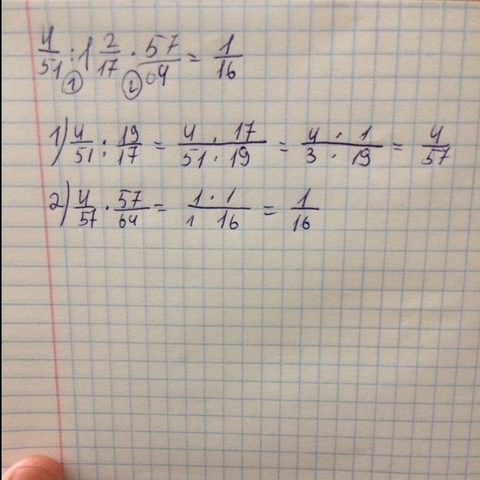 4/51 : 1 2/17 · 57/64 = 1/16
① ②
1) 4/51 : 19/17 = 4 · 17/51 · 19 = 4 · 1/3 · 19 = 4/57
2) 4/57 · 57/64 = 1 · 1/1 16 = 1/16